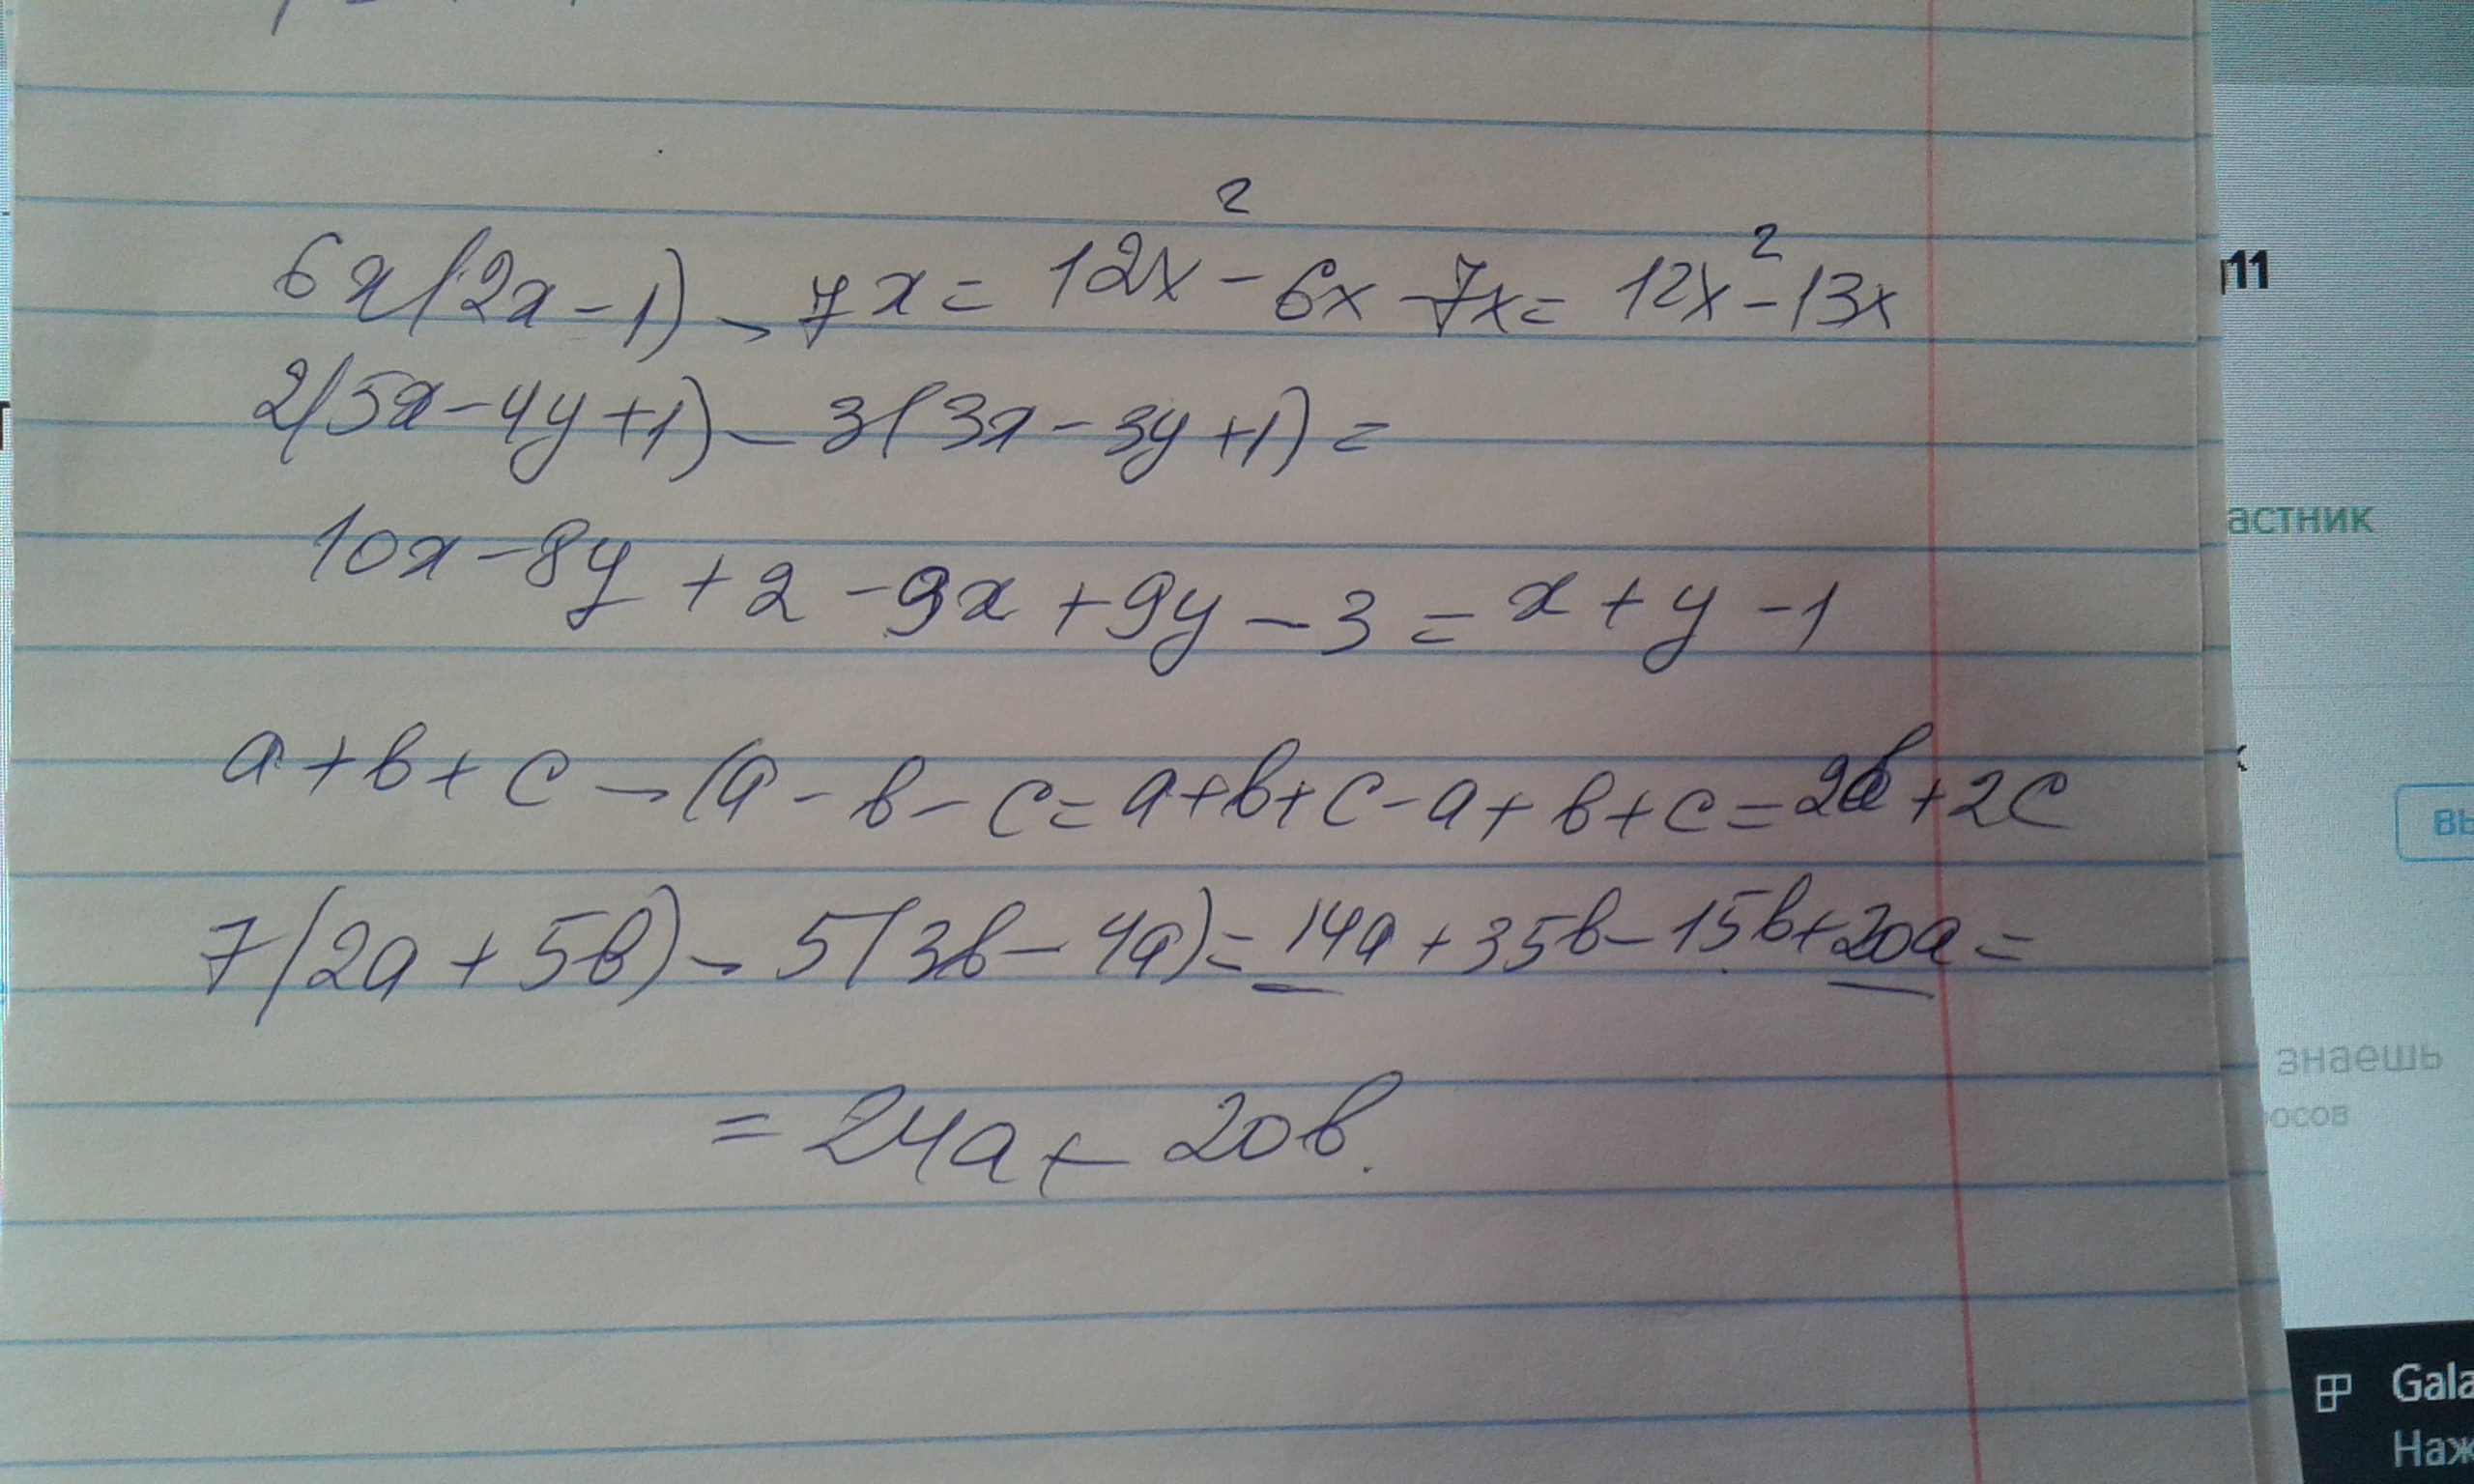 6x(2x-1)-7x=12x²-6x-7x=12x²-13x
2(5x-4y+1)-3(3x-3y+1)=
10x-8y+2-9x+9y-3=x+y-1
a+b+c-(a-b-c=a+b+c-a+b+c=2b+2c
7(2a+5b)-5(3b-4a)=14a+35b-15b+20a=
=24a+20b.
11
астник
вы
знаешь
осов
Gala
Наж